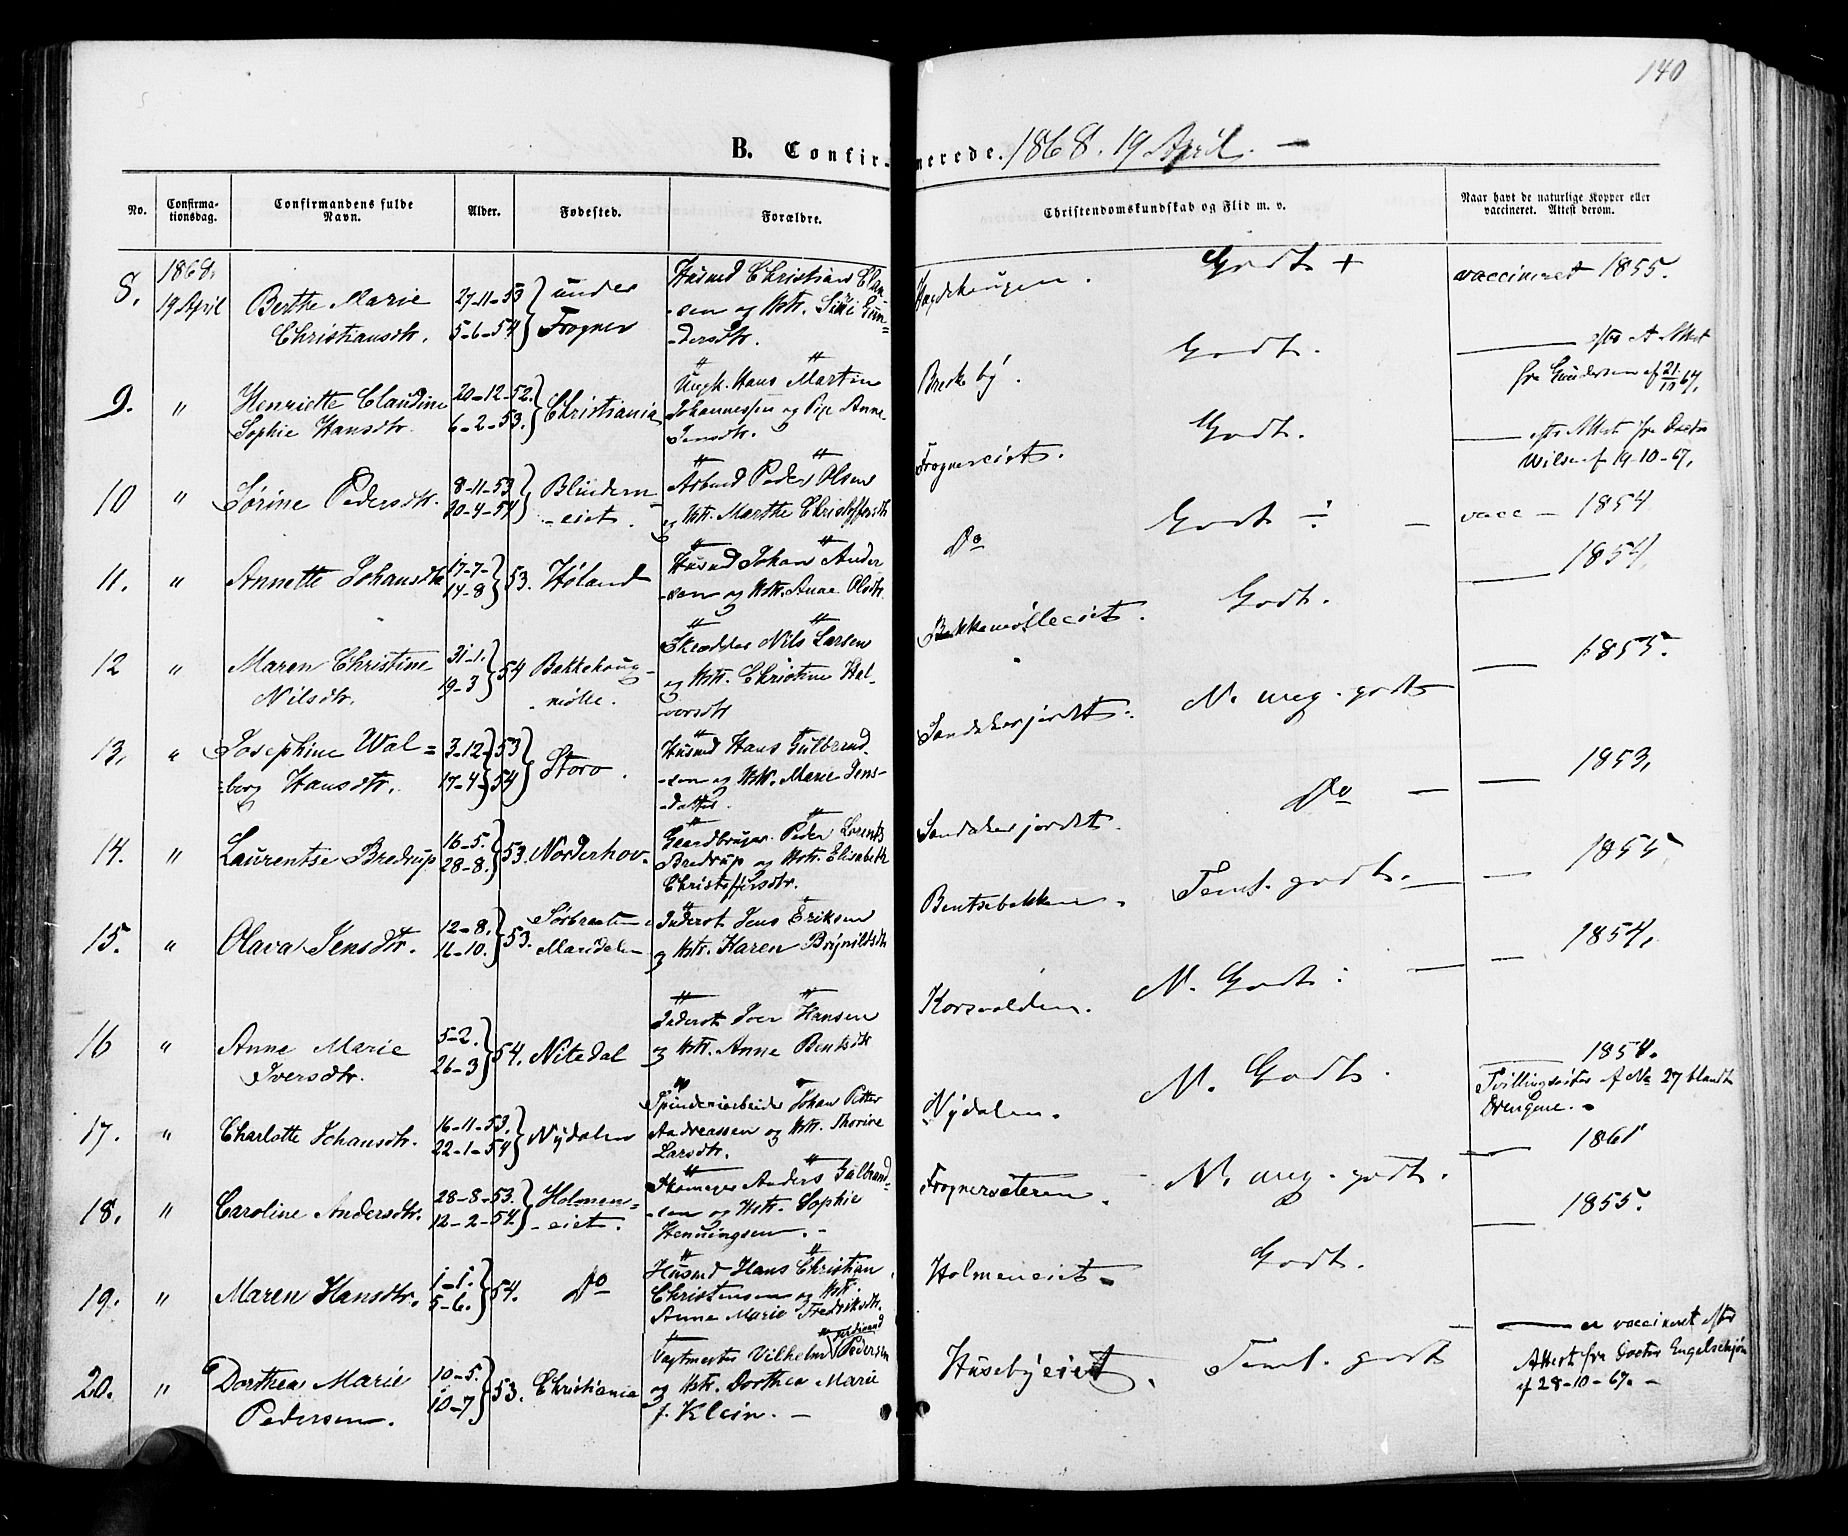 140
B. Confirmerede. 1868. 19 April. —
No.
Confirmationsdag.
Confirmandens fulde Navn.
Alder.
Fødested.
Forældre.
Christendomskundskab og Flid m. v.
Naar havt de naturlige Kopper eller vaccineret. Attest derom.
8. 1868. 19 April
Berthe Marie
Christiansdtr.
27-11-53
5-6-54
under
Frogner
Husmd Christian
-sen og Hstr.
-dersdtr.
Godt +
vaccineret 1855.
9. "
Henriette Claudine
Sophie Hansdtr.
20-12-52.
6-2-53.
Christiania
Ungk. Hans Martin
Johannessen og Pige Anne
Jensdtr.
Breskeby.
Godt.
— efter Attest
fra Gundersen af 21/10 67.
10 "
Sørine Pedersdtr.
8-11-53
20-4-54
Blindern
-eiet.
Peder Olsen
og Hstr. Marthe Christoffersdtr
Frognereiet.
Godt.
— eftr Attest fra Doctor
Wilse af 19-10-67.
11. "
Annette Johansdtr
17-7-
14-8
53.
Høland
Husmd Johan Ander
-sen og Hstr. Anne Olsdtr.
Do
Godt ÷ —
vacc — 1854
12 "
Maren Christine
Nilsdtr.
31-1.
19-3
54
Bakkehaug
-mølle.
Skrædder Nils Larsen
og Hstr. Christine Hal-
-vorsdtr
Bakkemølleeiet.
Godt.
— 1854.
13. "
Josephine Wal=
=borg Hansdtr.
3-12-53
17-4-54
Storo.
Husmd Hans Gulbrand
-sen og Hstr. Marie Jens-
-datter.
Sandakerjordet.
N. meg. godt
— 1855.
14. "
Laurentse Bredrup
16-5.
28-8.
53.
Norderhov.
Gaardbruger Peder Lorents
Bredrup og Hstr. Elisabeth
Christoffersdtr.
Sandakerjordet.
Do —
— 1853.
15. "
Olava Jensdtr.
12-8.
16-10.
53.
Sørbraaten
Maridalen
Inderst Jens Eriksen
og Hstr. Karen Brynildsdtr
Bentsebakken.
Teml. godt. —
— 1855
16 "
Anne Marie
Iversdtr.
5-2.
26-3
54.
Nitedal
Inderst Iver Hansen
og Hstr. Anne Bentsdtr
Korsvolden.
N. Godt: —
— 1854.
17. "
Charlotte Johansdtr.
16-11-53.
22-1-54
Nydalen
Spinderiarbeider Johan Petter
Andreassen og Hstr. Thorine
Larsdtr.
Nydalen.
N. Godt.
— 1854.
Tvillingsøster af No 27 blandt
Drengene. —
18. "
Caroline Andersdtr.
28-8-53.
12-2-54.
Holmen-
-eiet.
Skomager Anders Gulbrand
-sen og Hstr. Sophie
Henningsen. —
Frognersæteren.
N. meg. godt.
— 1861
19. "
Maren Hansdtr.
1-1.
5-6.
54.
Do
Husmd Hans Christian
Christensen og Hstr.
Anne Marie Fredriksdtr.
Holmeneiet
Godt.
— 1855.
20. "
Dorthea Marie
Pedersen.
10-5.
10-7
53.
Christiania
Vagtmester Vilhelm Ferdinand Pedersen
og Hstr. Dorthea Marie
f. Klein. —
Husebyeiet.
Teml. godt
— er vaccineret efter
Attest fra Doctor Engelschjøn
af 28-10-67. —